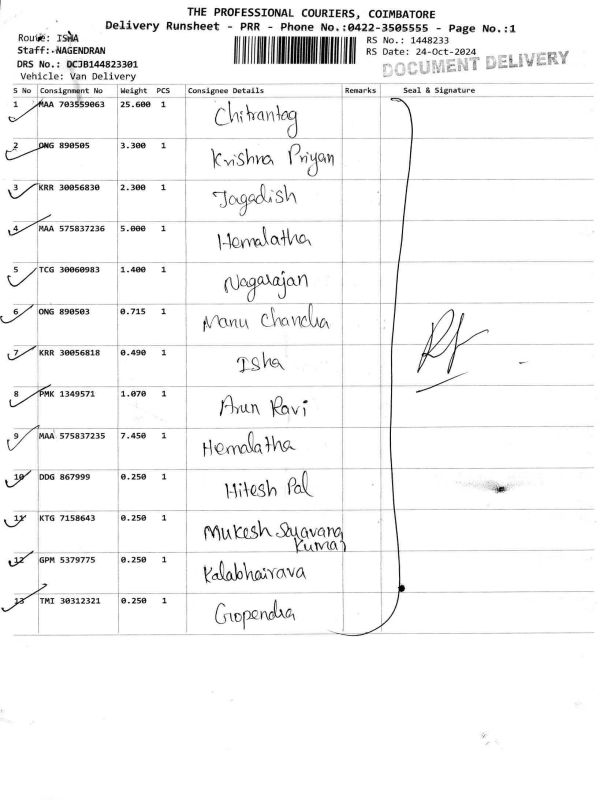 THE PROFESSIONAL COURIERS, COIMBATORE
Delivery Runsheet - PRR - Phone No.:0422-3505555 - Page No.:1
Route: ISHA
RS No.: 1448233
Staff: NAGENDRAN
RS Date: 24-Oct-2024
DRS No.: DCJB144823301
DOCUMENT DELIVERY
Vehicle: Van Delivery
S No Consignment No Weight PCS Consignee Details Remarks Seal & Signature
1 MAA 703559063 25.600 1 Chitrantag
2 ONG 890505 3.300 1 Krishna Priyan
3 KRR 30056830 2.300 1 Jagadish
4 MAA 575837236 5.000 1 Hemalatha
5 TCG 30060983 1.400 1 Nagarajan
6 ONG 890503 0.715 1 Manu Chandra
7 KRR 30056818 0.490 1 Isha
8 PMK 1349571 1.070 1 Arun Ravi
9 MAA 575837235 7.450 1 Hemalatha
10 DDG 867999 0.250 1 Hitesh Pal
11 KTG 7158643 0.250 1 Mukesh
Kumar
12 GPM 5379775 0.250 1 Kalabhairava
13 TMI 30312321 0.250 1 Gropendra